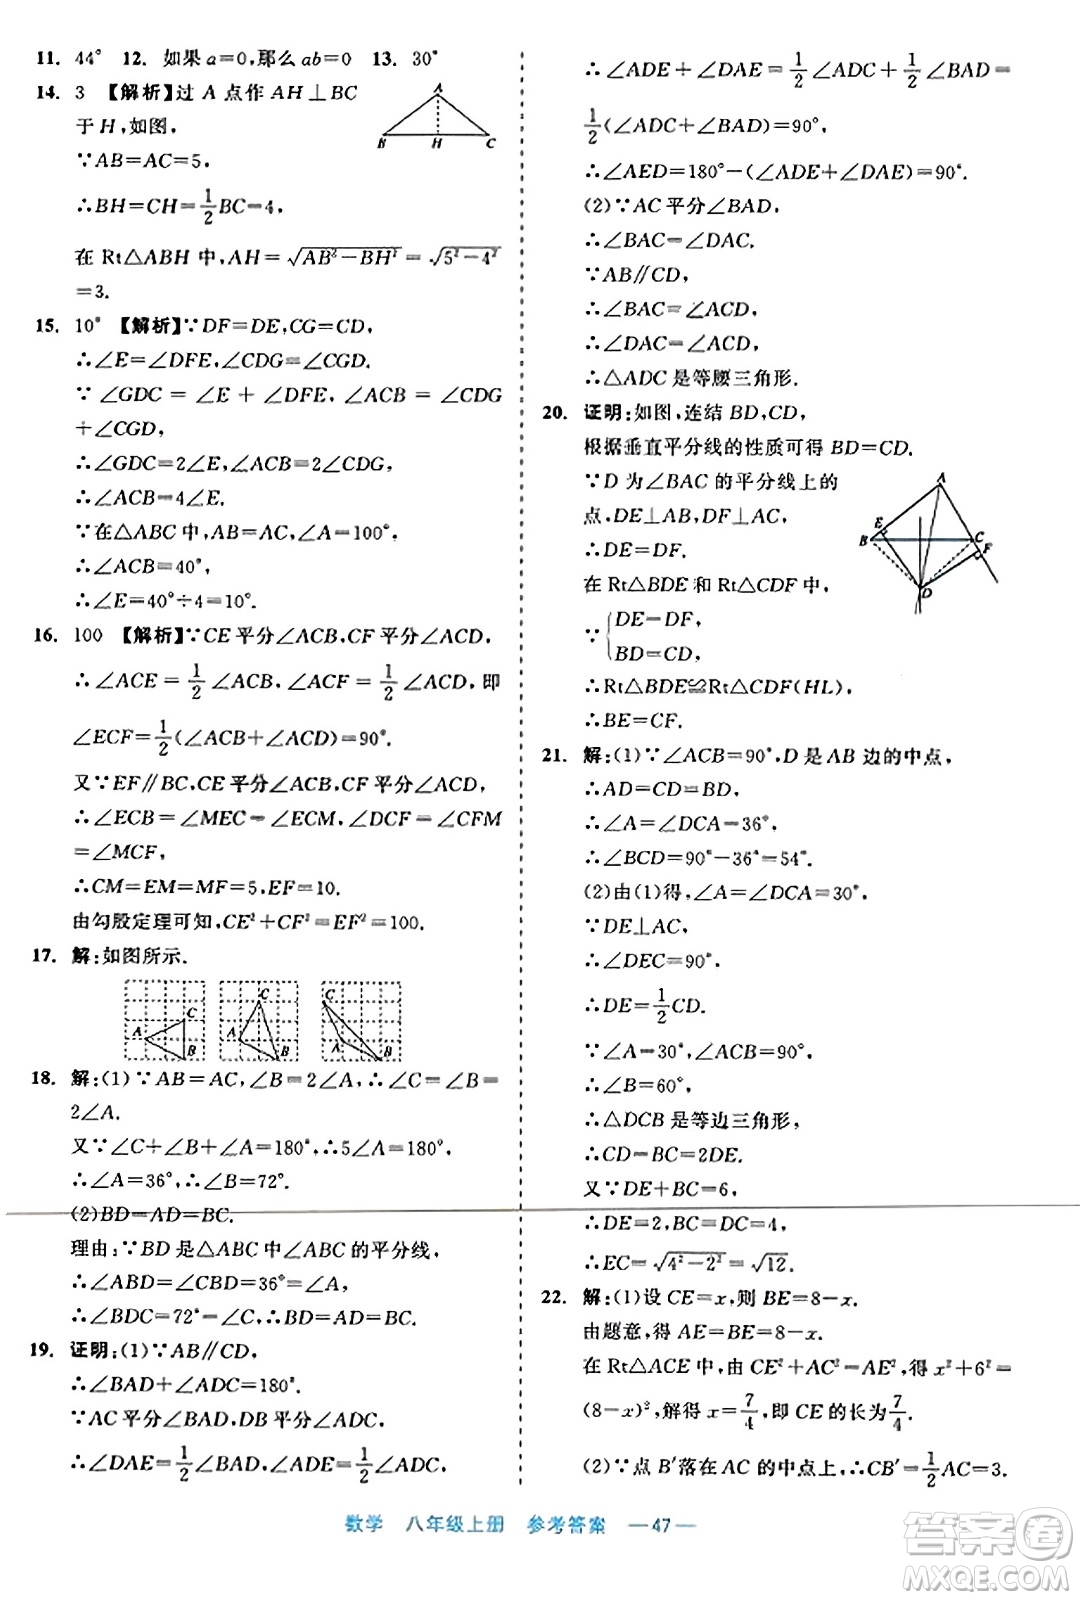 11. 44° 12. 如果 a=0,那么 ab=0 13. 30°
14. 3 【解析】过 A 点作 AH⊥BC
于 H,如图,
∵AB=AC=5,
∴BH=CH=1/2BC=4,
在 Rt△ABH 中,AH=√(AB²-BH²)=√(5²-4²)
=3.
A
B H C
15. 10° 【解析】∵DF=DE,CG=CD,
∴∠E=∠DFE,∠CDG=∠CGD.
∵∠GDC=∠E+∠DFE,∠ACB=∠CDG
+∠CGD,
∴∠GDC=2∠E,∠ACB=2∠CDG,
∴∠ACB=4∠E.
∵在△ABC 中,AB=AC,∠A=100°,
∴∠ACB=40°,
∴∠E=40°÷4=10°.
16. 100 【解析】∵CE 平分∠ACB,CF 平分∠ACD,
∴∠ACE=1/2∠ACB,∠ACF=1/2∠ACD,即
∠ECF=1/2(∠ACB+∠ACD)=90°.
又∵EF∥BC,CE 平分∠ACB,CF 平分∠ACD,
∴∠ECB=∠MEC=∠ECM,∠DCF=∠CFM
=∠MCF,
∴CM=EM=MF=5,EF=10.
由勾股定理可知,CE²+CF²=EF²=100.
17. 解:如图所示.
A C B
A C B
C A B
18. 解:(1)∵AB=AC,∠B=2∠A,∴∠C=∠B=
2∠A.
又∵∠C+∠B+∠A=180°,∴5∠A=180°,
∴∠A=36°,∴∠B=72°.
(2)BD=AD=BC.
理由:∵BD 是△ABC 中∠ABC 的平分线,
∴∠ABD=∠CBD=36°=∠A,
∴∠BDC=72°=∠C,∴BD=AD=BC.
19. 证明:(1)∵AB∥CD,
∴∠BAD+∠ADC=180°.
∵AC 平分∠BAD,DB 平分∠ADC,
∴∠DAE=1/2∠BAD,∠ADE=1/2∠ADC,
∴∠ADE+∠DAE=1/2∠ADC+1/2∠BAD=
1/2(∠ADC+∠BAD)=90°,
∴∠AED=180°-(∠ADE+∠DAE)=90°.
(2)∵AC 平分∠BAD,
∴∠BAC=∠DAC.
∵AB∥CD,
∴∠BAC=∠ACD,
∴∠DAC=∠ACD,
∴△ADC 是等腰三角形.
20. 证明:如图,连结 BD,CD,
根据垂直平分线的性质可得 BD=CD.
∵D 为∠BAC 的平分线上的
点,DE⊥AB,DF⊥AC,
∴DE=DF.
在 Rt△BDE 和 Rt△CDF 中,
∵{DE=DF,
BD=CD,
∴Rt△BDE≌Rt△CDF(HL),
∴BE=CF.
A
E
B C
F
D
21. 解:(1)∵∠ACB=90°,D 是 AB 边的中点,
∴AD=CD=BD,
∴∠A=∠DCA=36°,
∴∠BCD=90°-36°=54°.
(2)由(1)得,∠A=∠DCA=30°,
∵DE⊥AC,
∴∠DEC=90°,
∴DE=1/2CD.
∵∠A=30°,∠ACB=90°,
∴∠B=60°,
∴△DCB 是等边三角形,
∴CD=BC=2DE.
又∵DE+BC=6,
∴DE=2,BC=DC=4,
∴EC=√(4²-2²)=√12.
22. 解:(1)设 CE=x,则 BE=8-x.
由题意,得 AE=BE=8-x.
在 Rt△ACE 中,由 CE²+AC²=AE²,得 x²+6²=
(8-x)²,解得 x=7/4,即 CE 的长为7/4.
(2)∵点 B′落在 AC 的中点上,∴CB′=1/2AC=3.
数学 八年级上册 参考答案 —47—
答案圈
MXQE.COM